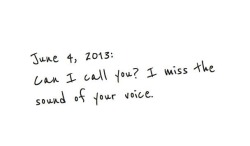 June 4, 2013:
Can I call you? I miss the
sound of your voice.